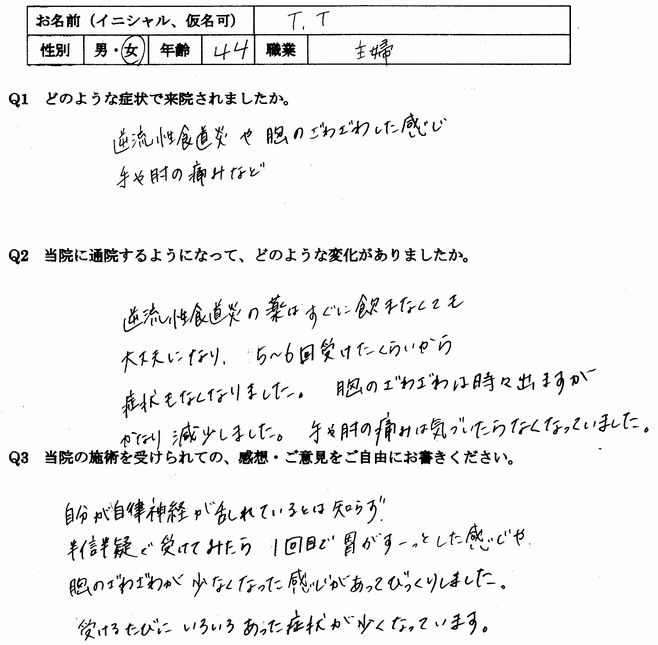 お名前（イニシャル、仮名可） T.T
性別 男・女 年齢 44 職業 主婦
Q1 どのような症状で来院されましたか。
逆流性食道炎や胸のざわざわした感じ
手や肘の痛みなど
Q2 当院に通院するようになって、どのような変化がありましたか。
逆流性食道炎の薬はすぐに飲まなくても
大丈夫になり、5～6回受けたくらいから
症状もなくなりました。胸のざわざわは時々出ますが
かなり減少しました。手や肘の痛みは気づいたらなくなっていました。
Q3 当院の施術を受けられての、感想・ご意見をご自由にお書きください。
自分が自律神経が乱れているとは知らず、
半信半疑で受けてみたら 1回目で胃がすーっとした感じや
胸のざわざわが少なくなった感じがあってびっくりしました。
受けるたびにいろいろあった症状が少くなっています。